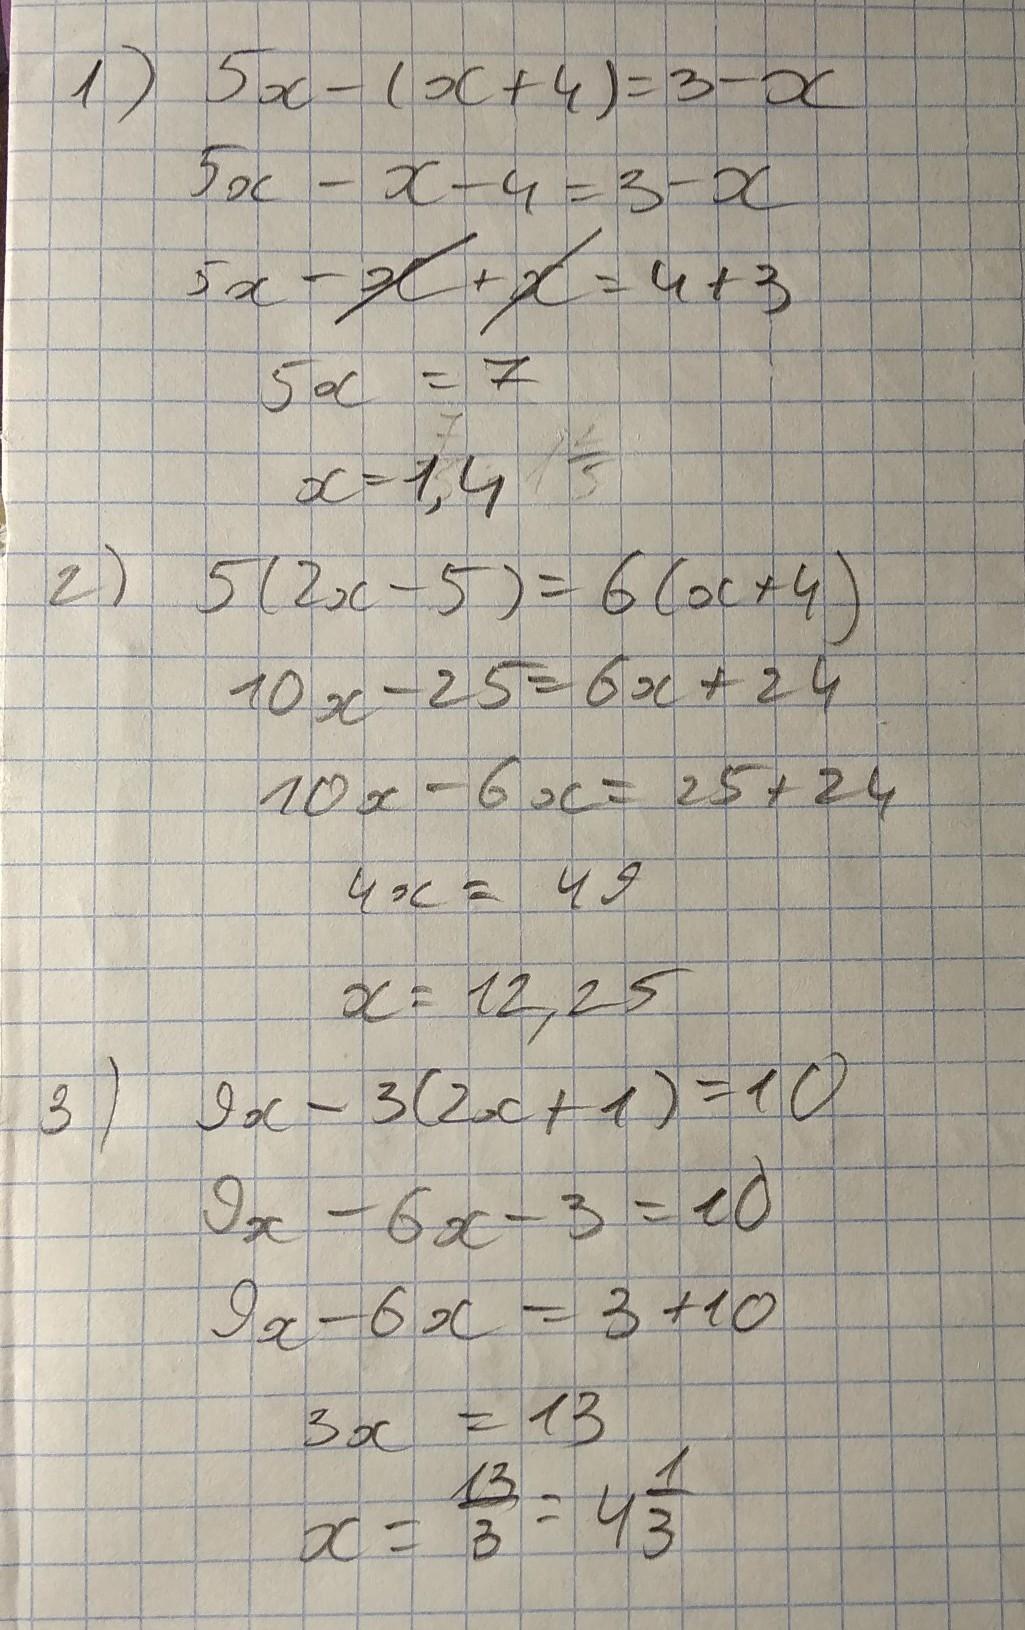 1) 5x - (x + 4) = 3 - x
5x - x - 4 = 3 - x
5x - x + x = 4 + 3
5x = 7
x = 1,4
2) 5(2x - 5) = 6(x + 4)
10x - 25 = 6x + 24
10x - 6x = 25 + 24
4x = 49
x = 12,25
3) 9x - 3(2x + 1) = 10
9x - 6x - 3 = 10
9x - 6x = 3 + 10
3x = 13
x = 13/3 = 4 1/3